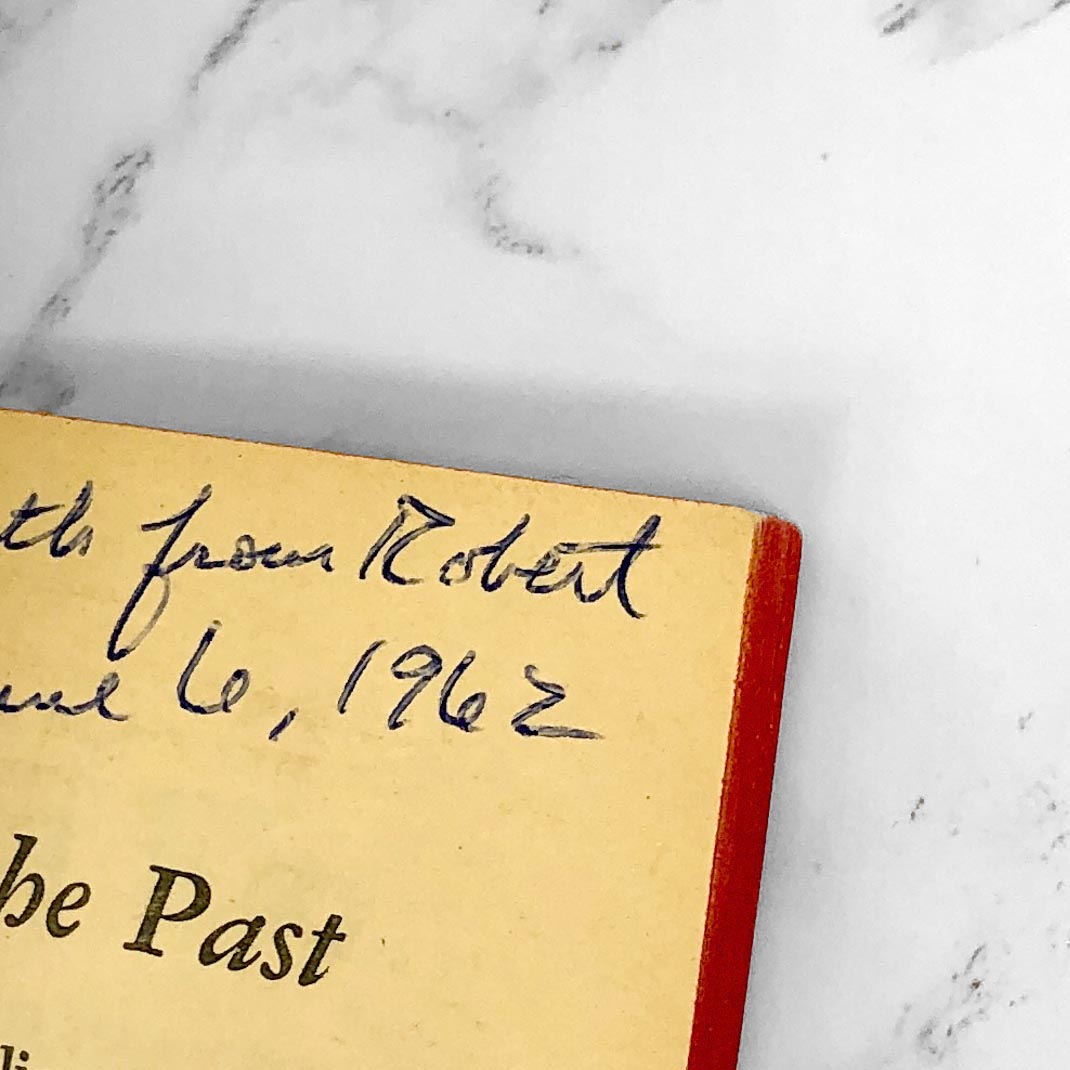 th from Robert
une 6, 1962
he Past
li